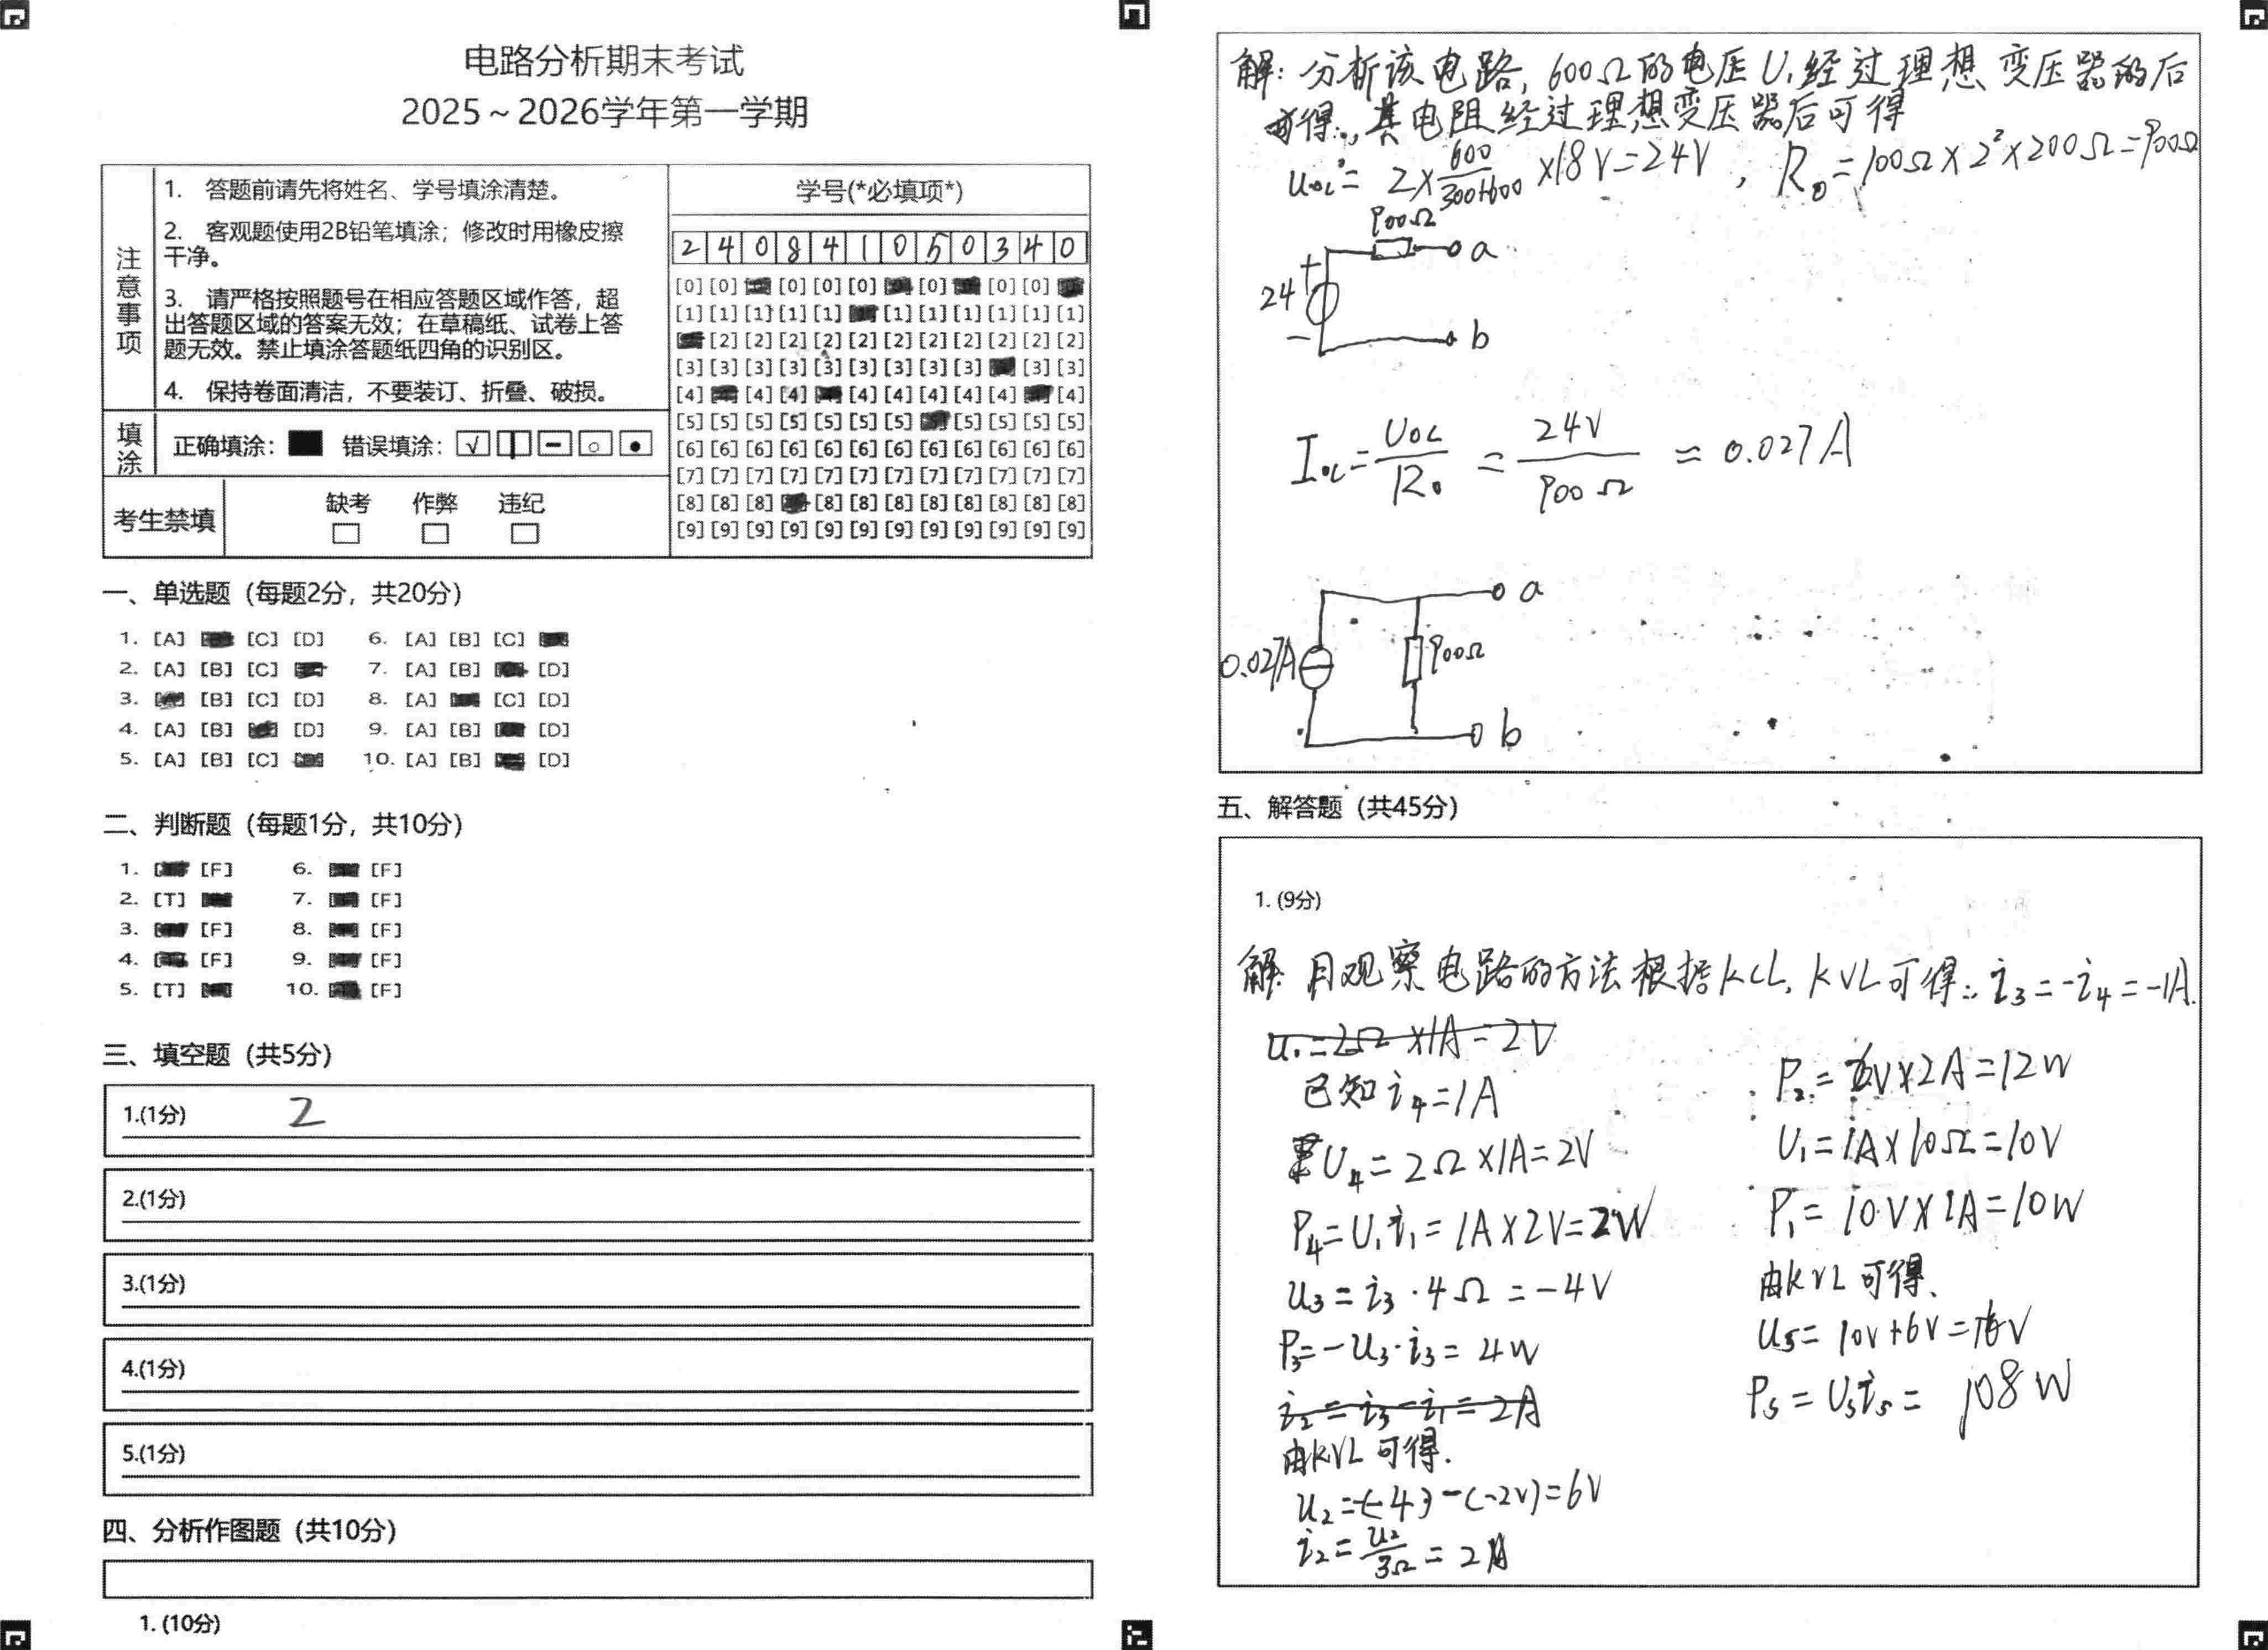 电路分析期末考试
2025～2026学年第一学期
注意事项
1. 答题前请先将姓名、学号填涂清楚。
2. 客观题使用2B铅笔填涂；修改时用橡皮擦
干净。
3. 请严格按照题号在相应答题区域作答，超
出答题区域的答案无效；在草稿纸、试卷上答
题无效。禁止填涂答题纸四角的识别区。
4. 保持卷面清洁，不要装订、折叠、破损。
填涂
正确填涂： 错误填涂：
考生禁填
缺考 作弊 违纪
学号(*必填项*)
2 4 0 8 4 1 0 5 0 3 4 0
[0] [0] [0] [0] [0] [0] [0] [0]
[1] [1] [1] [1] [1] [1] [1] [1] [1] [1] [1]
[2] [2] [2] [2] [2] [2] [2] [2] [2] [2] [2]
[3] [3] [3] [3] [3] [3] [3] [3] [3] [3] [3]
[4] [4] [4] [4] [4] [4] [4] [4] [4]
[5] [5] [5] [5] [5] [5] [5] [5] [5] [5] [5]
[6] [6] [6] [6] [6] [6] [6] [6] [6] [6] [6] [6]
[7] [7] [7] [7] [7] [7] [7] [7] [7] [7] [7] [7]
[8] [8] [8] [8] [8] [8] [8] [8] [8] [8] [8]
[9] [9] [9] [9] [9] [9] [9] [9] [9] [9] [9] [9]
一、单选题（每题2分，共20分）
1. [A] [C] [D] 6. [A] [B] [C]
2. [A] [B] [C] 7. [A] [B] [D]
3. [B] [C] [D] 8. [A] [C] [D]
4. [A] [B] [D] 9. [A] [B] [D]
5. [A] [B] [C] 10. [A] [B] [D]
二、判断题（每题1分，共10分）
1. [F] 6. [F]
2. [T] 7. [F]
3. [F] 8. [F]
4. [F] 9. [F]
5. [T] 10. [F]
三、填空题（共5分）
1.(1分) 2
2.(1分)
3.(1分)
4.(1分)
5.(1分)
四、分析作图题（共10分）
1. (10分)
解：分析该电路，600Ω的电压U₁经过理想变压器的后
可得：，其电阻经过理想变压器后可得
uoc = 2×600/(300+600)×18V=24V，R₀=100Ω×2²×200Ω=900Ω
900Ω
a
+
24
−
b
Ioc=Uoc/R₀ = 24V/900Ω ≈ 0.027A
a
0.027A
900Ω
b
五、解答题（共45分）
1. (9分)
解：用观察电路的方法根据KCL，KVL可得：i₃=-i₄=-1A.
u₁=2Ω×1A=2V
已知i₄=1A
U₄=2Ω×1A=2V
P₄=U₁i₁=1A×2V=2W
u₃=i₃·4Ω=-4V
P₃=-u₃·i₃=4W
i₂=i₃-i₁=2A
由KVL可得.
u₂=(-4)-(-2V)=6V
i₂=u₂/3Ω=2A
P₂=6V×2A=12W
U₁=1A×10Ω=10V
P₁=10V×1A=10W
由KVL可得、
u₅=10V+6V=16V
P₅=U₅i₅=108W